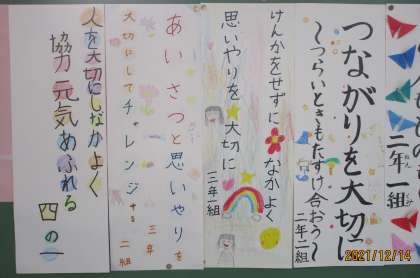 二年一組
つながりを大切に
〜つらいときもたすけ合おう〜
二年二組
けんかをせずになかよく
思いやりを大切に
三年一組
あいさつと思いやりを
大切にしてチャレンジする
三年二組
人を大切にしなかよく
協力元気あふれる
四の一
2021/12/14